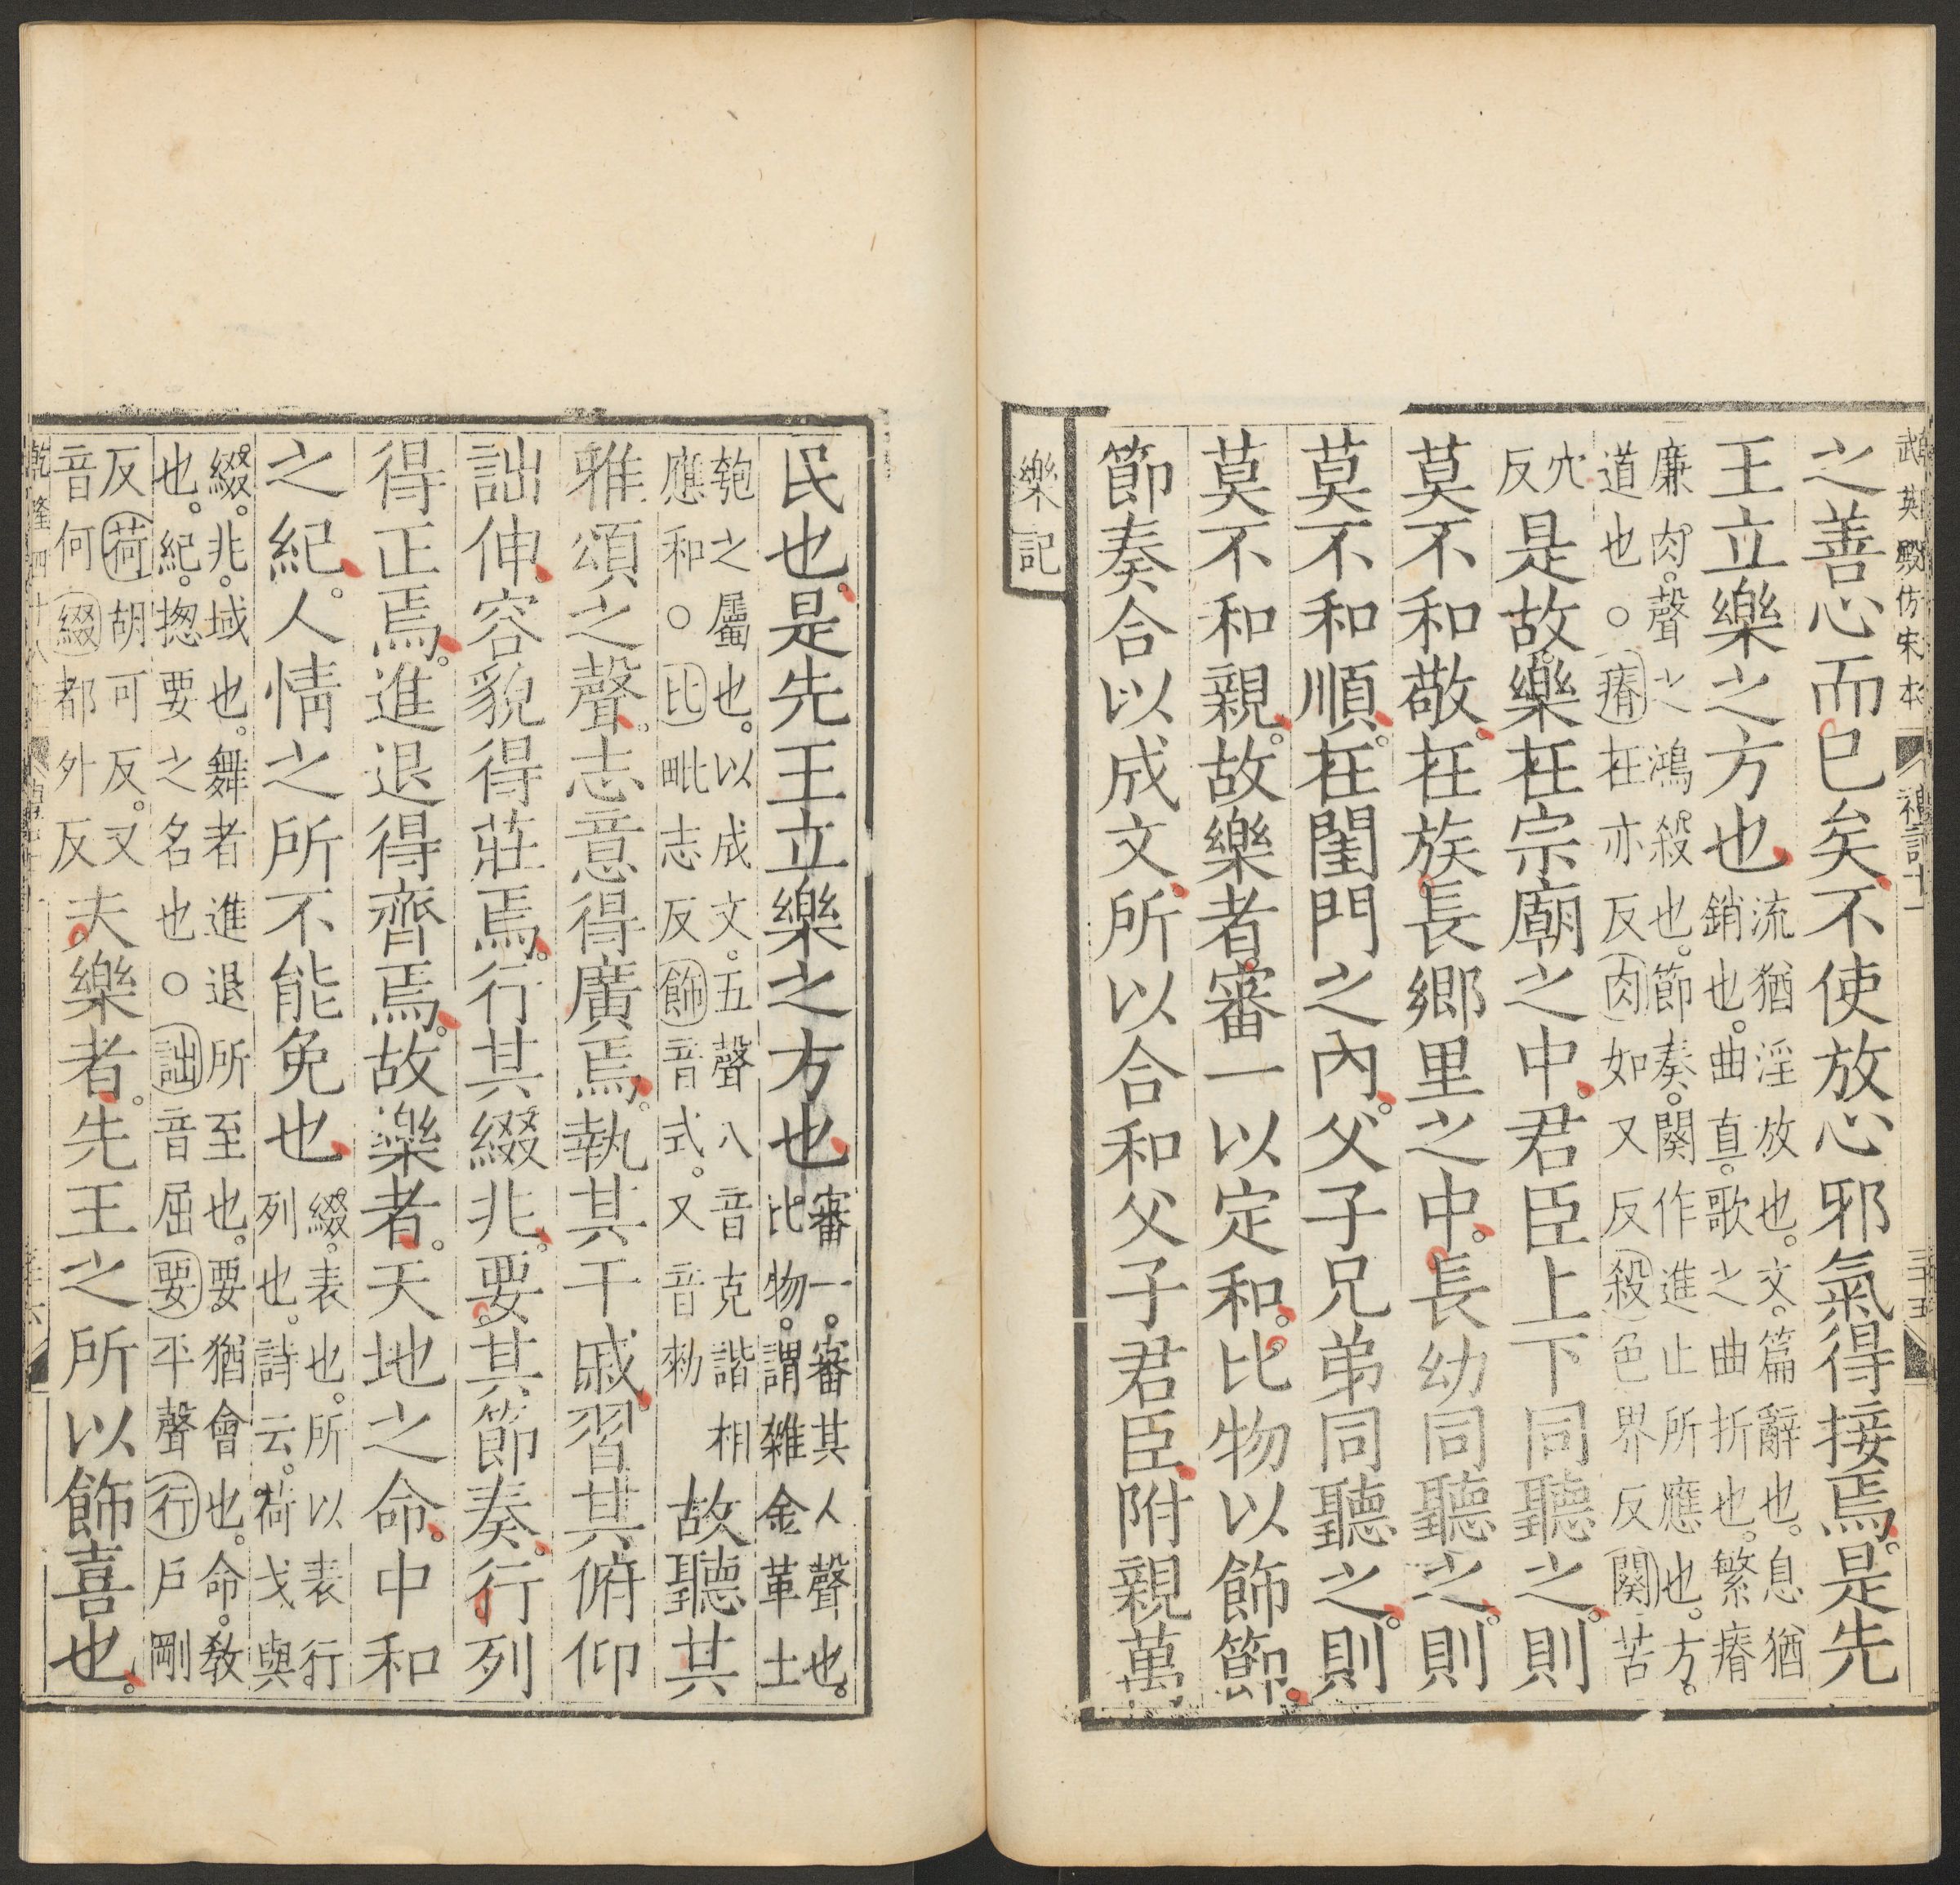 武英殿仿宋本
禮記十一
三十五
之善心而已矣不使放心邪氣得接焉是先
王立樂之方也流猶淫放也。文。篇辭也。息猶
銷也。曲直。歌之曲折也。繁瘠
廉肉。聲之鴻殺也。節奏。闋作進止所應也。方。
道也○瘠在亦反肉如又反殺色界反闋苦
穴
反是故樂在宗廟之中君臣上下同聽之則
莫不和敬在族長鄉里之中長幼同聽之則
莫不和順在閨門之內父子兄弟同聽之則
莫不和親故樂者審一以定和比物以飾節
節奏合以成文所以合和父子君臣附親萬
樂記
民也是先王立樂之方也審一。審其人聲也。
比物。謂雜金革土
匏之屬也。以成文。五聲八音克諧相
應和。○比毗志反飾音式。又音勑故聽其
雅頌之聲志意得廣焉執其干戚習其俯仰
詘伸容貌得莊焉行其綴兆要其節奏行列
得正焉進退得齊焉故樂者天地之命中和
之紀人情之所不能免也綴。表也。所以表行
列也。詩云。荷戈與
綴。兆。域也。舞者進退所至也。要猶會也。命。教
也。紀。揔要之名也○詘音屈要平聲行戶剛
反荷胡可反。又
音何綴都外反夫樂者先王之所以飾喜也
乾隆四十八年